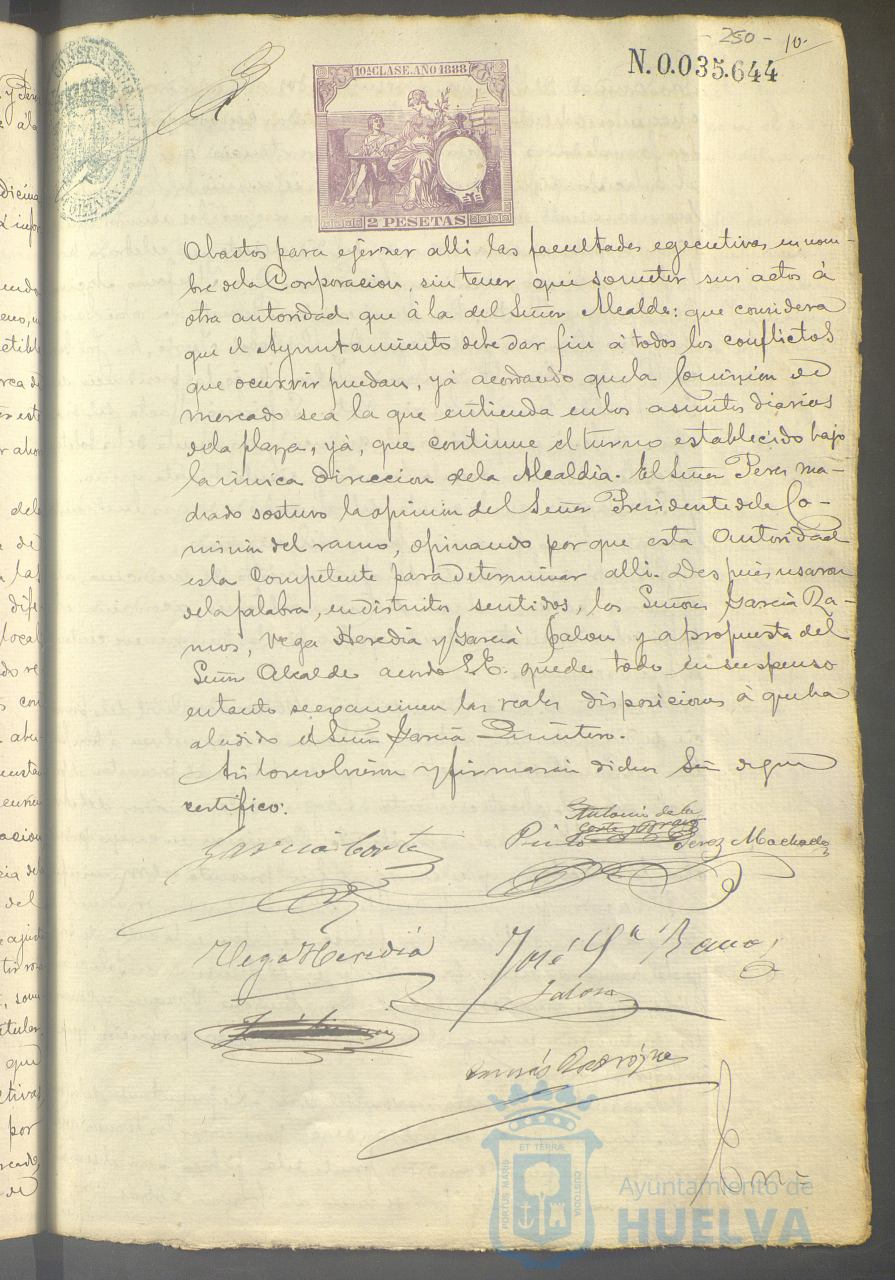 - 250 - 10.
N.0.035.644
10ª CLASE. AÑO 1888
2 PESETAS
CONSTITUCIONAL
HUELVA
Abastos para ejercer alli las facultades egecutivas, en nom-
bre de la Corporacion, sin tener que someter sus actos á
otra autoridad que á la del Señor Alcalde: que considera
que el Ayuntamiento debe dar fin á todos los conflictos
que ocurrir puedan, yá acordando que la Comision de
mercado sea la que entienda en los asuntos diarios
de la plaza, yá, que continue el turno establecido bajo
la unica direccion de la Alcaldia. El Señor Perez Ma-
chado sostuvo la opinion del Señor Presidente de la Co-
mision del ramo, opinando por que esta Autoridad
esta competente para determinar alli. Despues usaron
de la palabra, en distintos sentidos, los Señores Garcia Ra-
mos, Vega Heredia y Garcia Jalon y a propuesta del
Señor Alcalde acordó S.E. quede todo en suspenso
en tanto se examinen las reales disposiciones á que ha
aludido el Señor Garcia Quintero.
Asi lo resolvieron y firmarán dichos Sres. de que
certifico:
Garcia Cortes
Antonio de la
Corte y Bravo
Pinto
Perez Machado
Vega Heredia
José Gª Ramos
Jalon
Tomás Rodrígue
ET TERRÆ
PORTUS MARIS
CUSTODIA
Ayuntamiento de
HUELVA